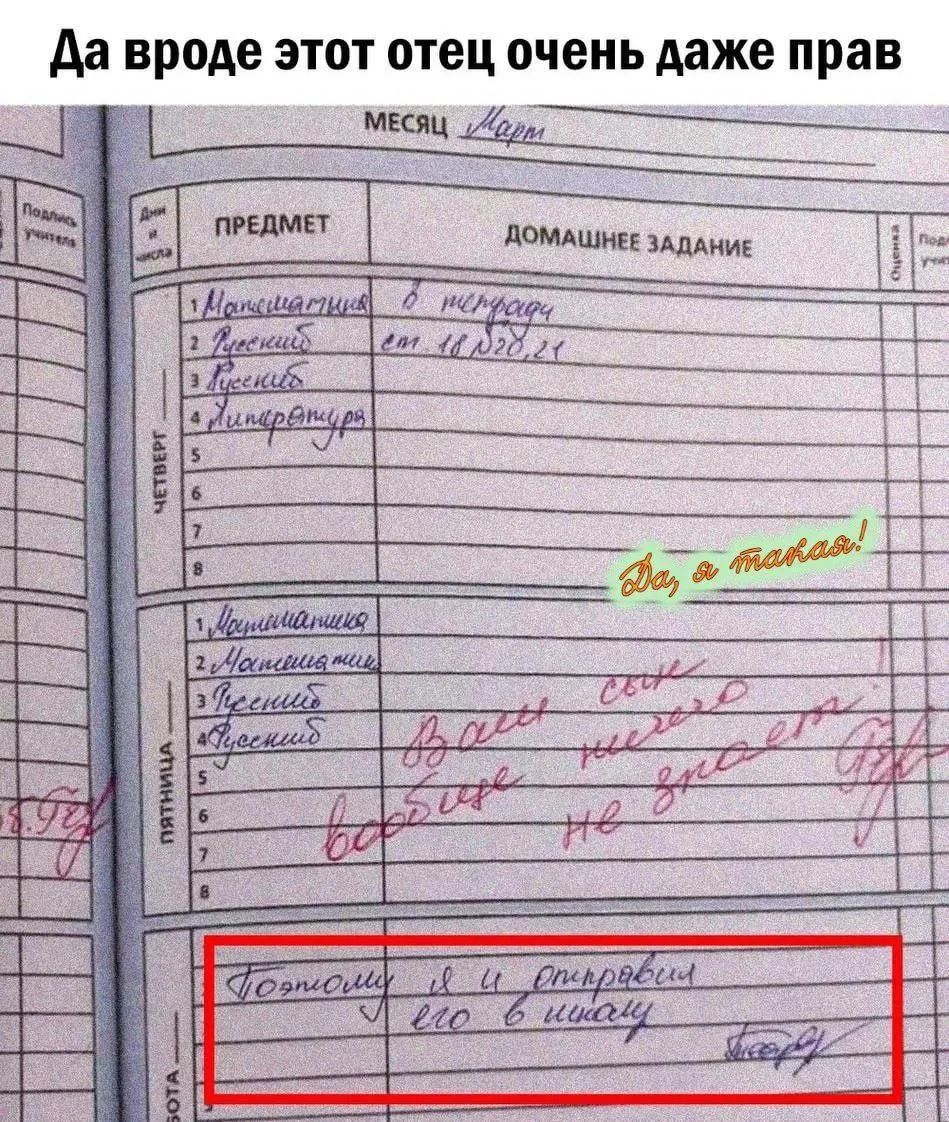 Да вроде этот отец очень даже прав
МЕСЯЦ Март
Подпись учителя
Дни и числа
ПРЕДМЕТ
ДОМАШНЕЕ ЗАДАНИЕ
Оценка
ЧЕТВЕРГ
1 Математика в тетради
2 Русский ст. 18 №20,21
3 Русский
4 Литература
5
6
7
8
Да, я такая!
ПЯТНИЦА
1 Математика
2 Математик
3 Русский
4 Русский
5
6
7
8
Ваш сын
вообще ничего
не знает!
Поэтому я и отправил
его в школу